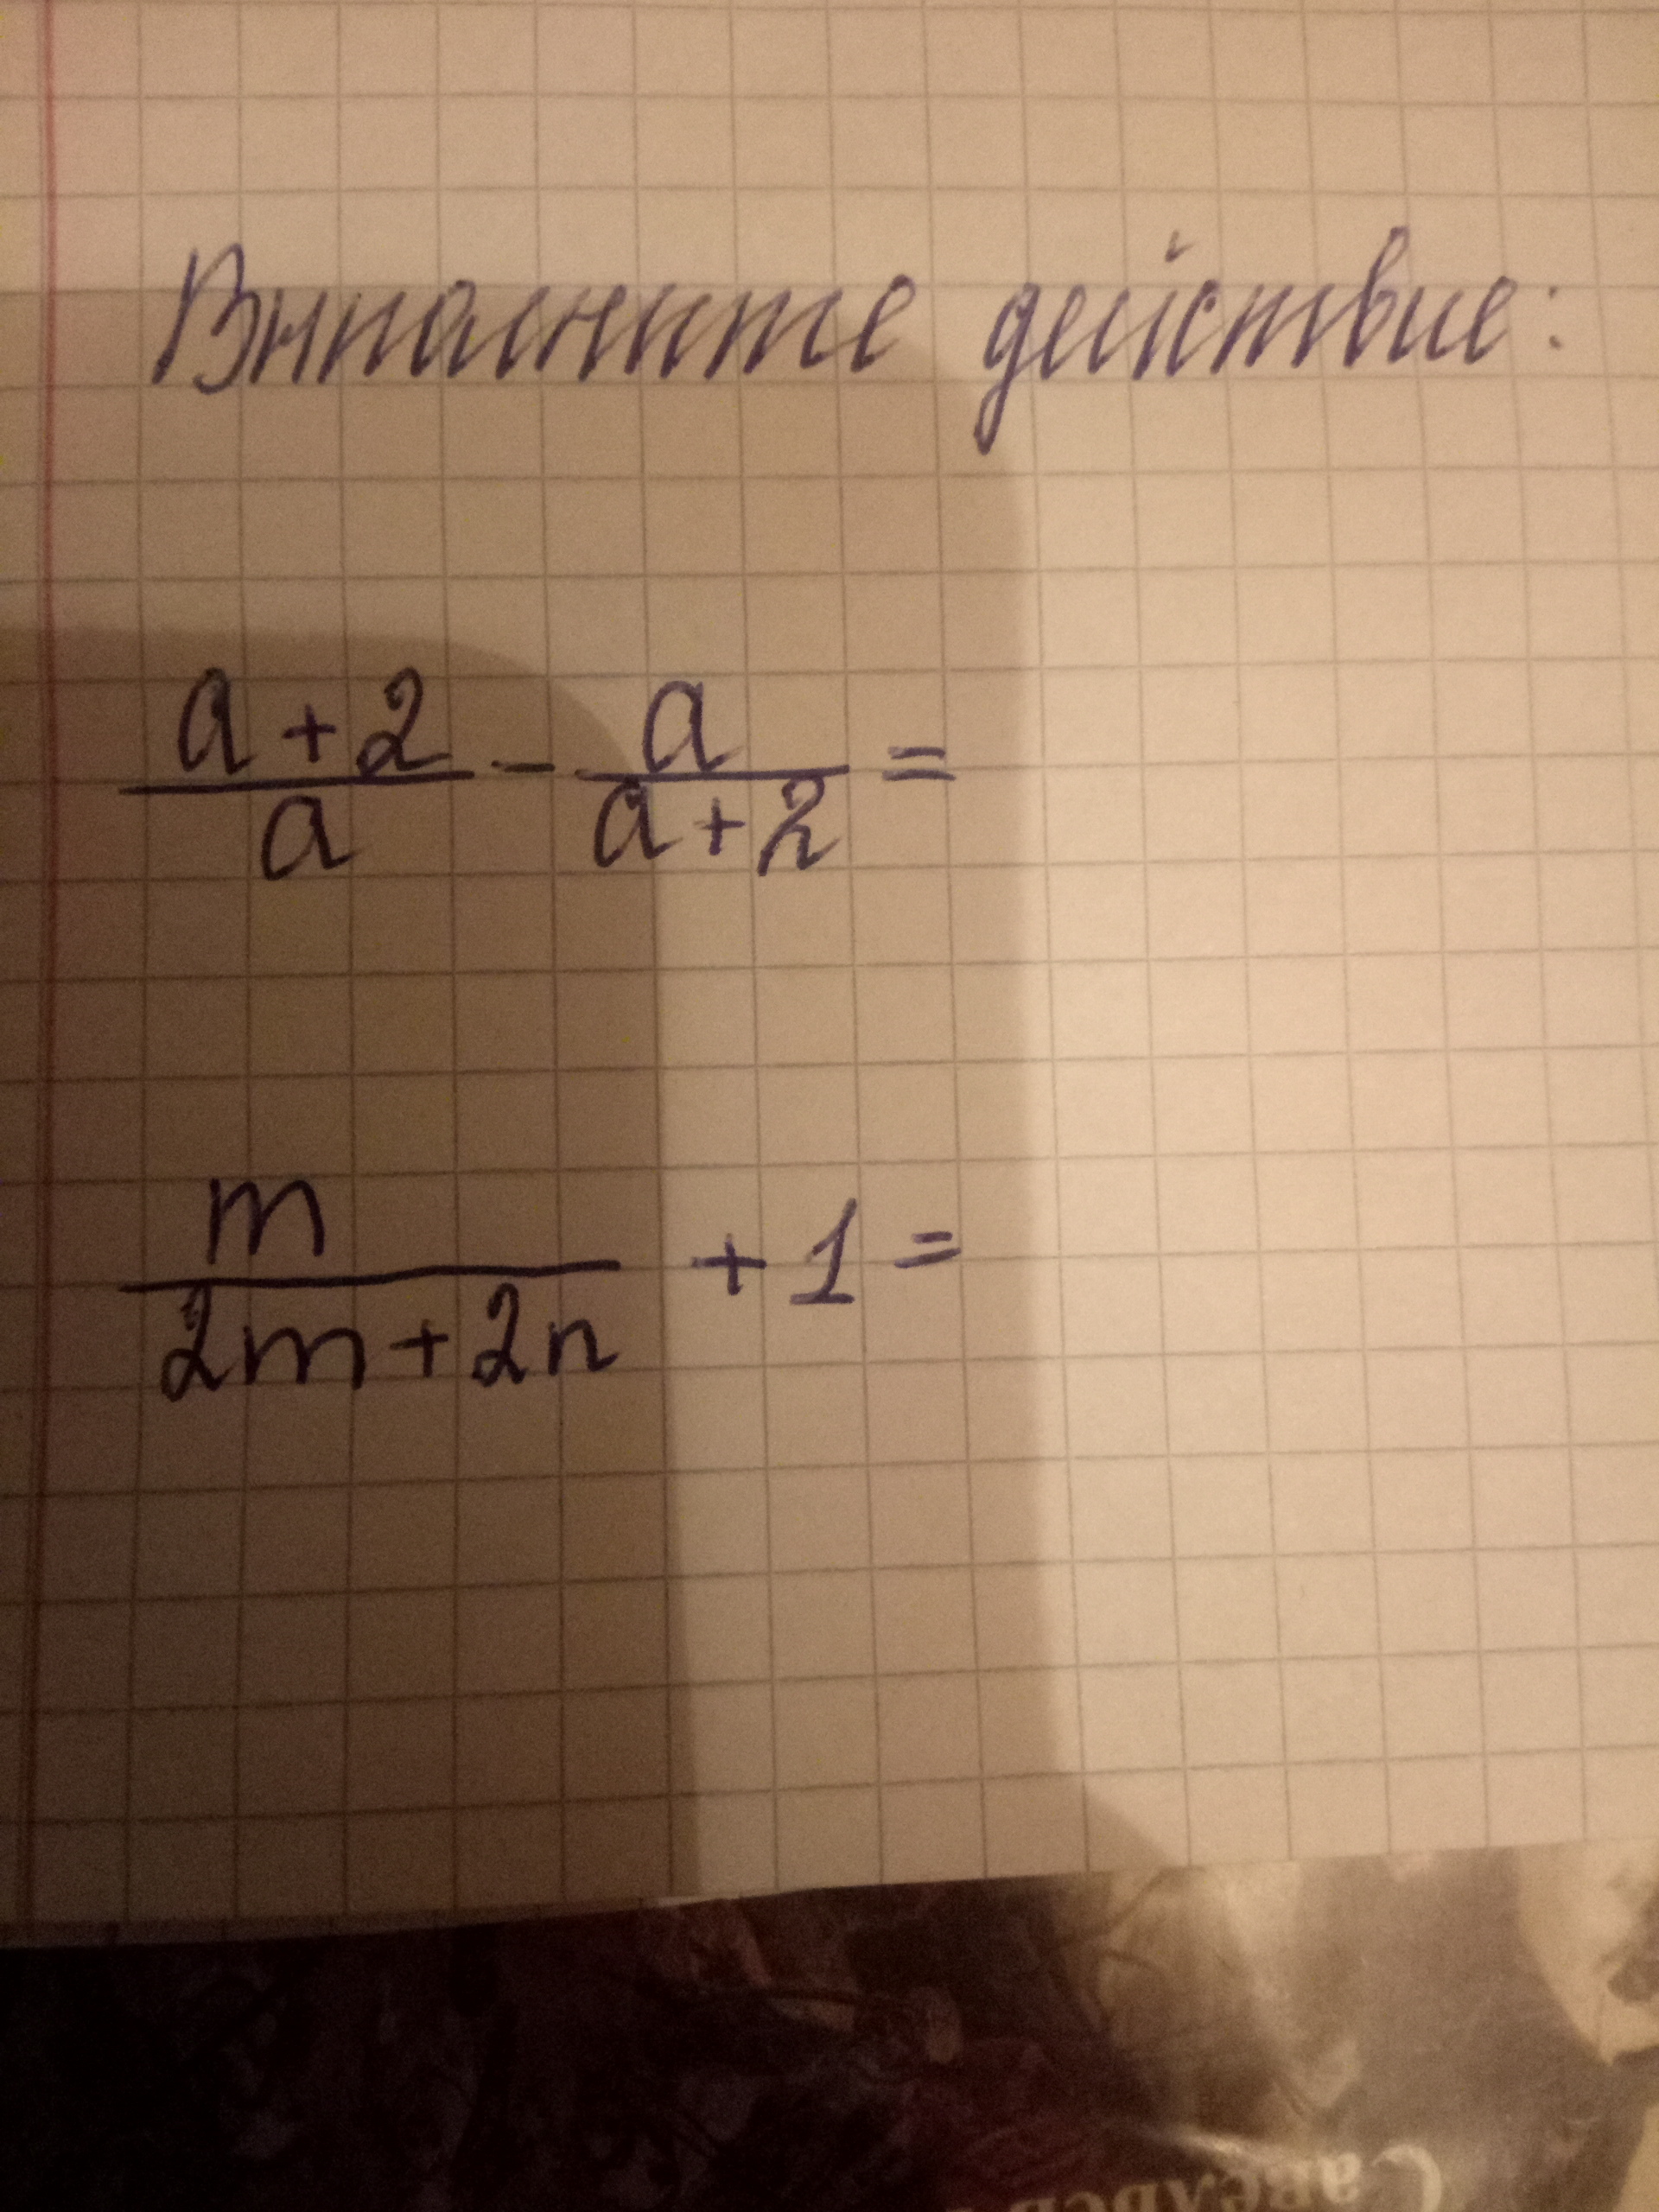 Выполните действие:
a+2/a - a/a+2 =
m/2m+2n + 1 =